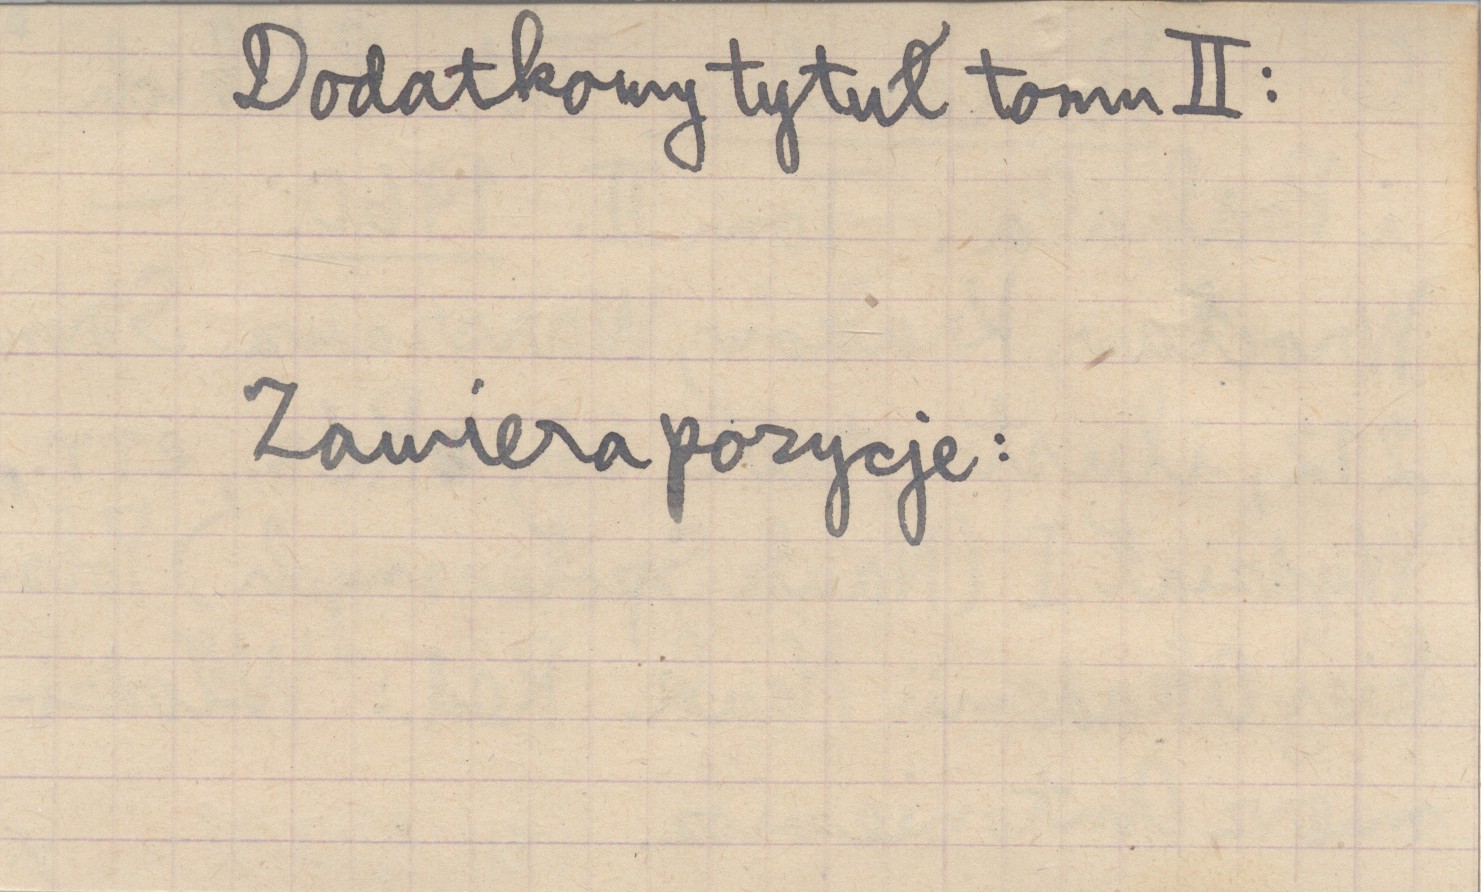 Dodatkowy tytuł tomu II:
Zawiera pozycje: